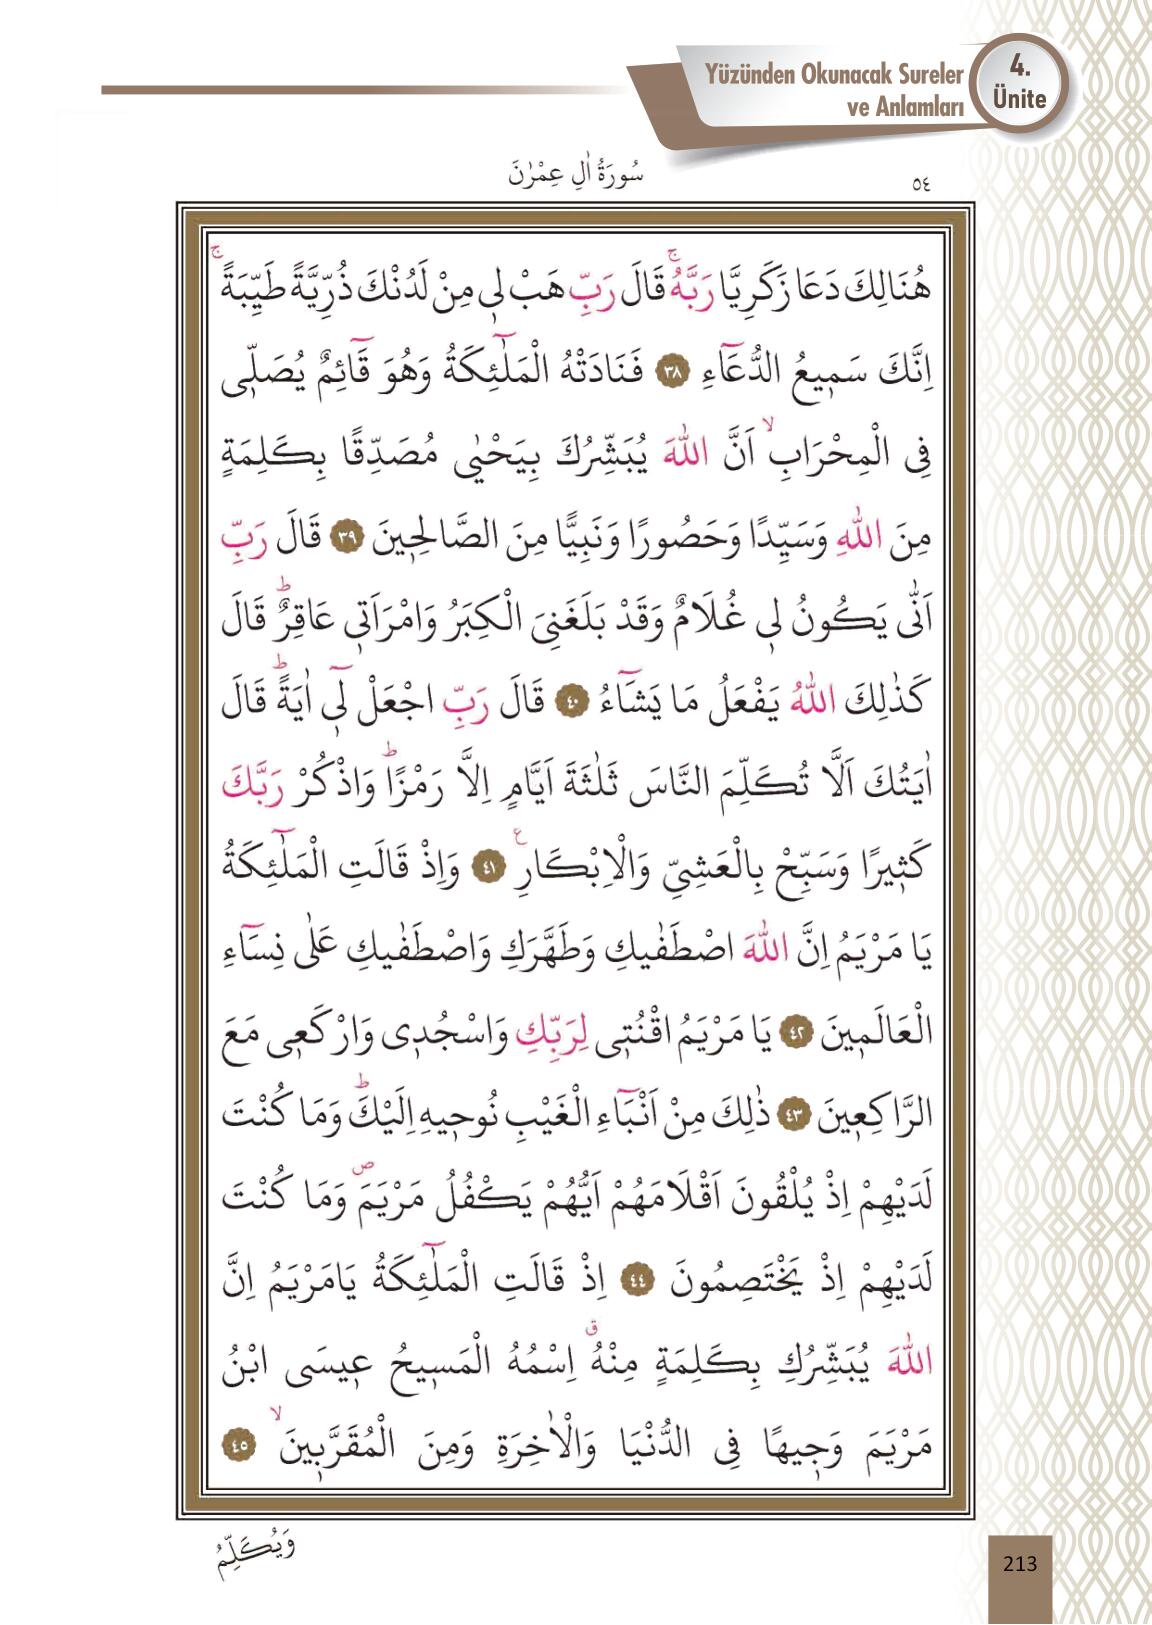 Yüzünden Okunacak Sureler
ve Anlamları
4.
Ünite
سُورَةُ اٰلِ عِمْرٰنَ
٥٤
هُنَالِكَ دَعَا زَكَرِيَّا رَبَّهُۚ قَالَ رَبِّ هَبْ ل۪ي مِنْ لَدُنْكَ ذُرِّيَّةً طَيِّبَةًۚ
اِنَّكَ سَم۪يعُ الدُّعَٓاءِ ﴿٣٨﴾ فَنَادَتْهُ الْمَلٰٓئِكَةُ وَهُوَ قَٓائِمٌ يُصَلّ۪ي
فِي الْمِحْرَابِۙ اَنَّ اللّٰهَ يُبَشِّرُكَ بِيَحْيٰى مُصَدِّقًا بِكَلِمَةٍ
مِنَ اللّٰهِ وَسَيِّدًا وَحَصُورًا وَنَبِيًّا مِنَ الصَّالِح۪ينَ ﴿٣٩﴾ قَالَ رَبِّ
اَنّٰى يَكُونُ ل۪ي غُلَامٌ وَقَدْ بَلَغَنِيَ الْكِبَرُ وَامْرَاَت۪ي عَاقِرٌۜ قَالَ
كَذٰلِكَ اللّٰهُ يَفْعَلُ مَا يَشَٓاءُ ﴿٤٠﴾ قَالَ رَبِّ اجْعَلْ ل۪ٓي اٰيَةًۜ قَالَ
اٰيَتُكَ اَلَّا تُكَلِّمَ النَّاسَ ثَلٰثَةَ اَيَّامٍ اِلَّا رَمْزًاۜ وَاذْكُرْ رَبَّكَ
كَث۪يرًا وَسَبِّحْ بِالْعَشِيِّ وَالْاِبْكَارِ۟ ﴿٤١﴾ وَاِذْ قَالَتِ الْمَلٰٓئِكَةُ
يَا مَرْيَمُ اِنَّ اللّٰهَ اصْطَفٰيكِ وَطَهَّرَكِ وَاصْطَفٰيكِ عَلٰى نِسَٓاءِ
الْعَالَم۪ينَ ﴿٤٢﴾ يَا مَرْيَمُ اقْنُت۪ي لِرَبِّكِ وَاسْجُد۪ي وَارْكَع۪ي مَعَ
الرَّاكِع۪ينَ ﴿٤٣﴾ ذٰلِكَ مِنْ اَنْبَٓاءِ الْغَيْبِ نُوح۪يهِ اِلَيْكَۜ وَمَا كُنْتَ
لَدَيْهِمْ اِذْ يُلْقُونَ اَقْلَامَهُمْ اَيُّهُمْ يَكْفُلُ مَرْيَمَۖ وَمَا كُنْتَ
لَدَيْهِمْ اِذْ يَخْتَصِمُونَ ﴿٤٤﴾ اِذْ قَالَتِ الْمَلٰٓئِكَةُ يَامَرْيَمُ اِنَّ
اللّٰهَ يُبَشِّرُكِ بِكَلِمَةٍ مِنْهُۗ اِسْمُهُ الْمَس۪يحُ ع۪يسَى ابْنُ
مَرْيَمَ وَج۪يهًا فِي الدُّنْيَا وَالْاٰخِرَةِ وَمِنَ الْمُقَرَّب۪ينَۙ ﴿٤٥﴾
وَيُكَلِّمُ
213